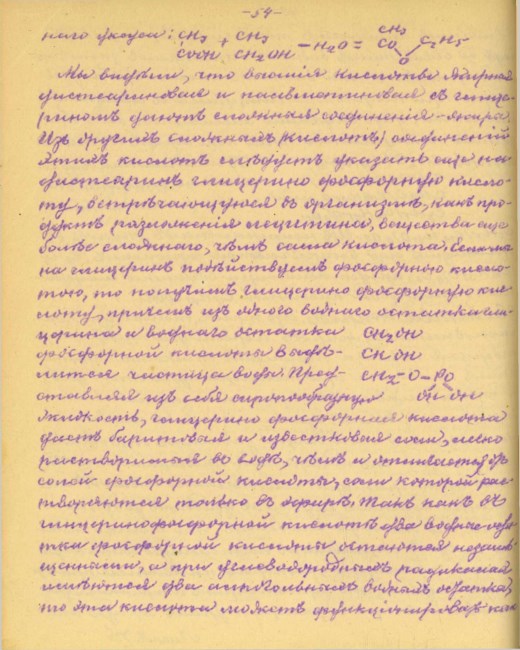 -54-
ного уксуса: CH3 + CH3 - H2O = CH3
COOH CH2OH CO C2H5
O
Мы видѣли, что высшія кислоты жирныя
дистеариновая и пасльмитиновая съ глице-
риномъ даютъ сложныя соединенія - эфиры.
Изъ другихъ сложныхъ (кислотъ) соединеній
этихъ кислотъ слѣдуетъ указать еще на
дистеаринъ глицерино фосфорную кисло-
ту, встрѣчающуюся въ организмѣ, какъ про-
дуктъ разложенія лецитина, вещества еще
болѣе сложнаго, чѣмъ сама кислота. Если мы
на глицеринъ подѣйствуемъ фосфорною кисло-
тою, то получимъ глицерино фосфорную кис-
лоту, причемъ изъ одного воднаго остатка гли-
церина и воднаго остатка CH2OH
фосфорной кислоты выдѣ- CH OH
лится частица воды. Пред- CH2-O-PO
ставляя изъ себя сиропообразную OH OH
жидкость, глицерино фосфорная кислота
даетъ баритовыя и известковыя соли, легко
растворимыя въ водѣ, чѣмъ и отличается отъ
солей фосфорной кислоты, соли которой рас-
творяются только въ эфирѣ. Такъ какъ въ
глицеринофосфорной кислотѣ два водныхъ остат-
ка фосфорной кислоты остаются незамѣ-
щенными, а при углеводородныхъ радикалахъ
имѣются два алкогольныхъ водныхъ остатка,
то эта кислота можетъ функціонировать какъ